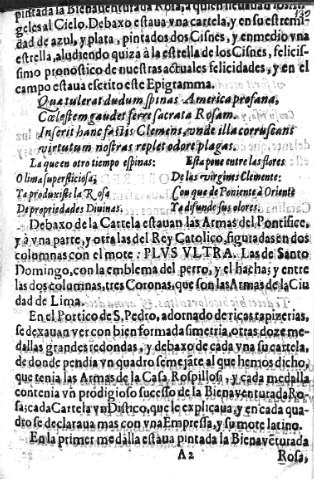 pintada la Bienauenturada Rosa, a quien lleuauan los An-
geles al Cielo. Debaxo estaua vna cartela, y en su estremi-
dad de azul, y plata, pintados dos Cisnes, y en medio vna
estrella, aludiendo quiza à la estrella de los Cisnes, felicis-
simo pronostico de nuestras actuales felicidades, y en el
campo estaua escrito este Epigramma.
Quæ tulerat dudum spinas America profana,
Cœlestem gaudet ferre sacrata Rosam.
Inserit hanc fastis Clemens, vnde illa corruscans
virtutum nostras replet odore plagas.
La que en otro tiempo espinas:
O lima supersticiosa;
Ta produxiste la Rosa
De propriedades Diuinas.
Esta pone entre las flores
De las virgines Clemente:
Con que de Poniente à Oriente
Ta difunde sus olores.
Debaxo de la Cartela estauan las Armas del Pontifice,
y à vna parte, y otra las del Rey Catolico, figuradas en dos
columnas con el mote: PLVS VLTRA. Las de Santo
Domingo, con la emblema del perro, y el hacha; y entre
las dos columnas, tres Coronas, que son las Armas de la Ciu
dad de Lima.
En el Portico de S. Pedro, adornado de ricas tapizerias,
se dexauan ver con bien formada simetria, otras doze me-
dallas grandes redondas, y debaxo de cada vna su cartela,
de donde pendia vn quadro semejãte al que hemos dicho,
que tenia las Armas de la Casa Rospillosi, y cada medalla
contenia vn prodigioso sucesso de la Bienauenturada Ro-
sa; cada Cartela vn Distico, que le explicaua, y en cada qua-
dro se declaraua mas con vna Empresa, y su mote latino.
En la primer medalla estaua pintada la Bienauẽturada
A 2 Rosa,